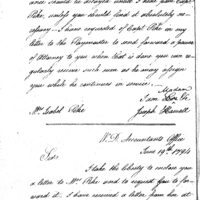 once should be delayed until I hear from Capt
Pike, unless you should find it absolutely ne-
cessary — I have requested of Capt Pike in my
letter to the Paymaster to send forward a power
of Attorney to you when that is done you can re-
gularly receive such sum as he may assign
you while he continues in service.
Madam
I am
Mrs Isabel Pike
Joseph Howell
W.D. Accountants Office
June 19th 1794
Sir
I take the liberty to enclose you
a letter to Mrs Pike and to request you to for-
ward it. I have received a letter from her at